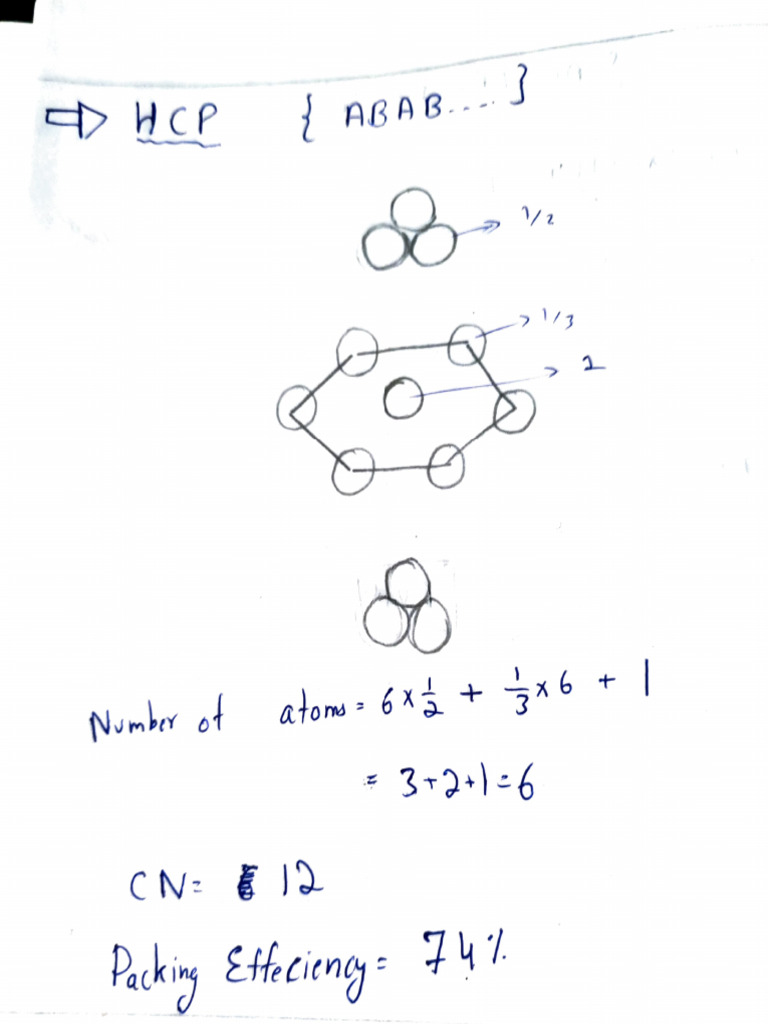 ⇒ HCP { ABAB.... }
1/2
1/3
1
Number of atoms = 6 × 1/2 + 1/3 × 6 + 1
= 3+2+1=6
CN= 12
Packing Effeciency= 74%